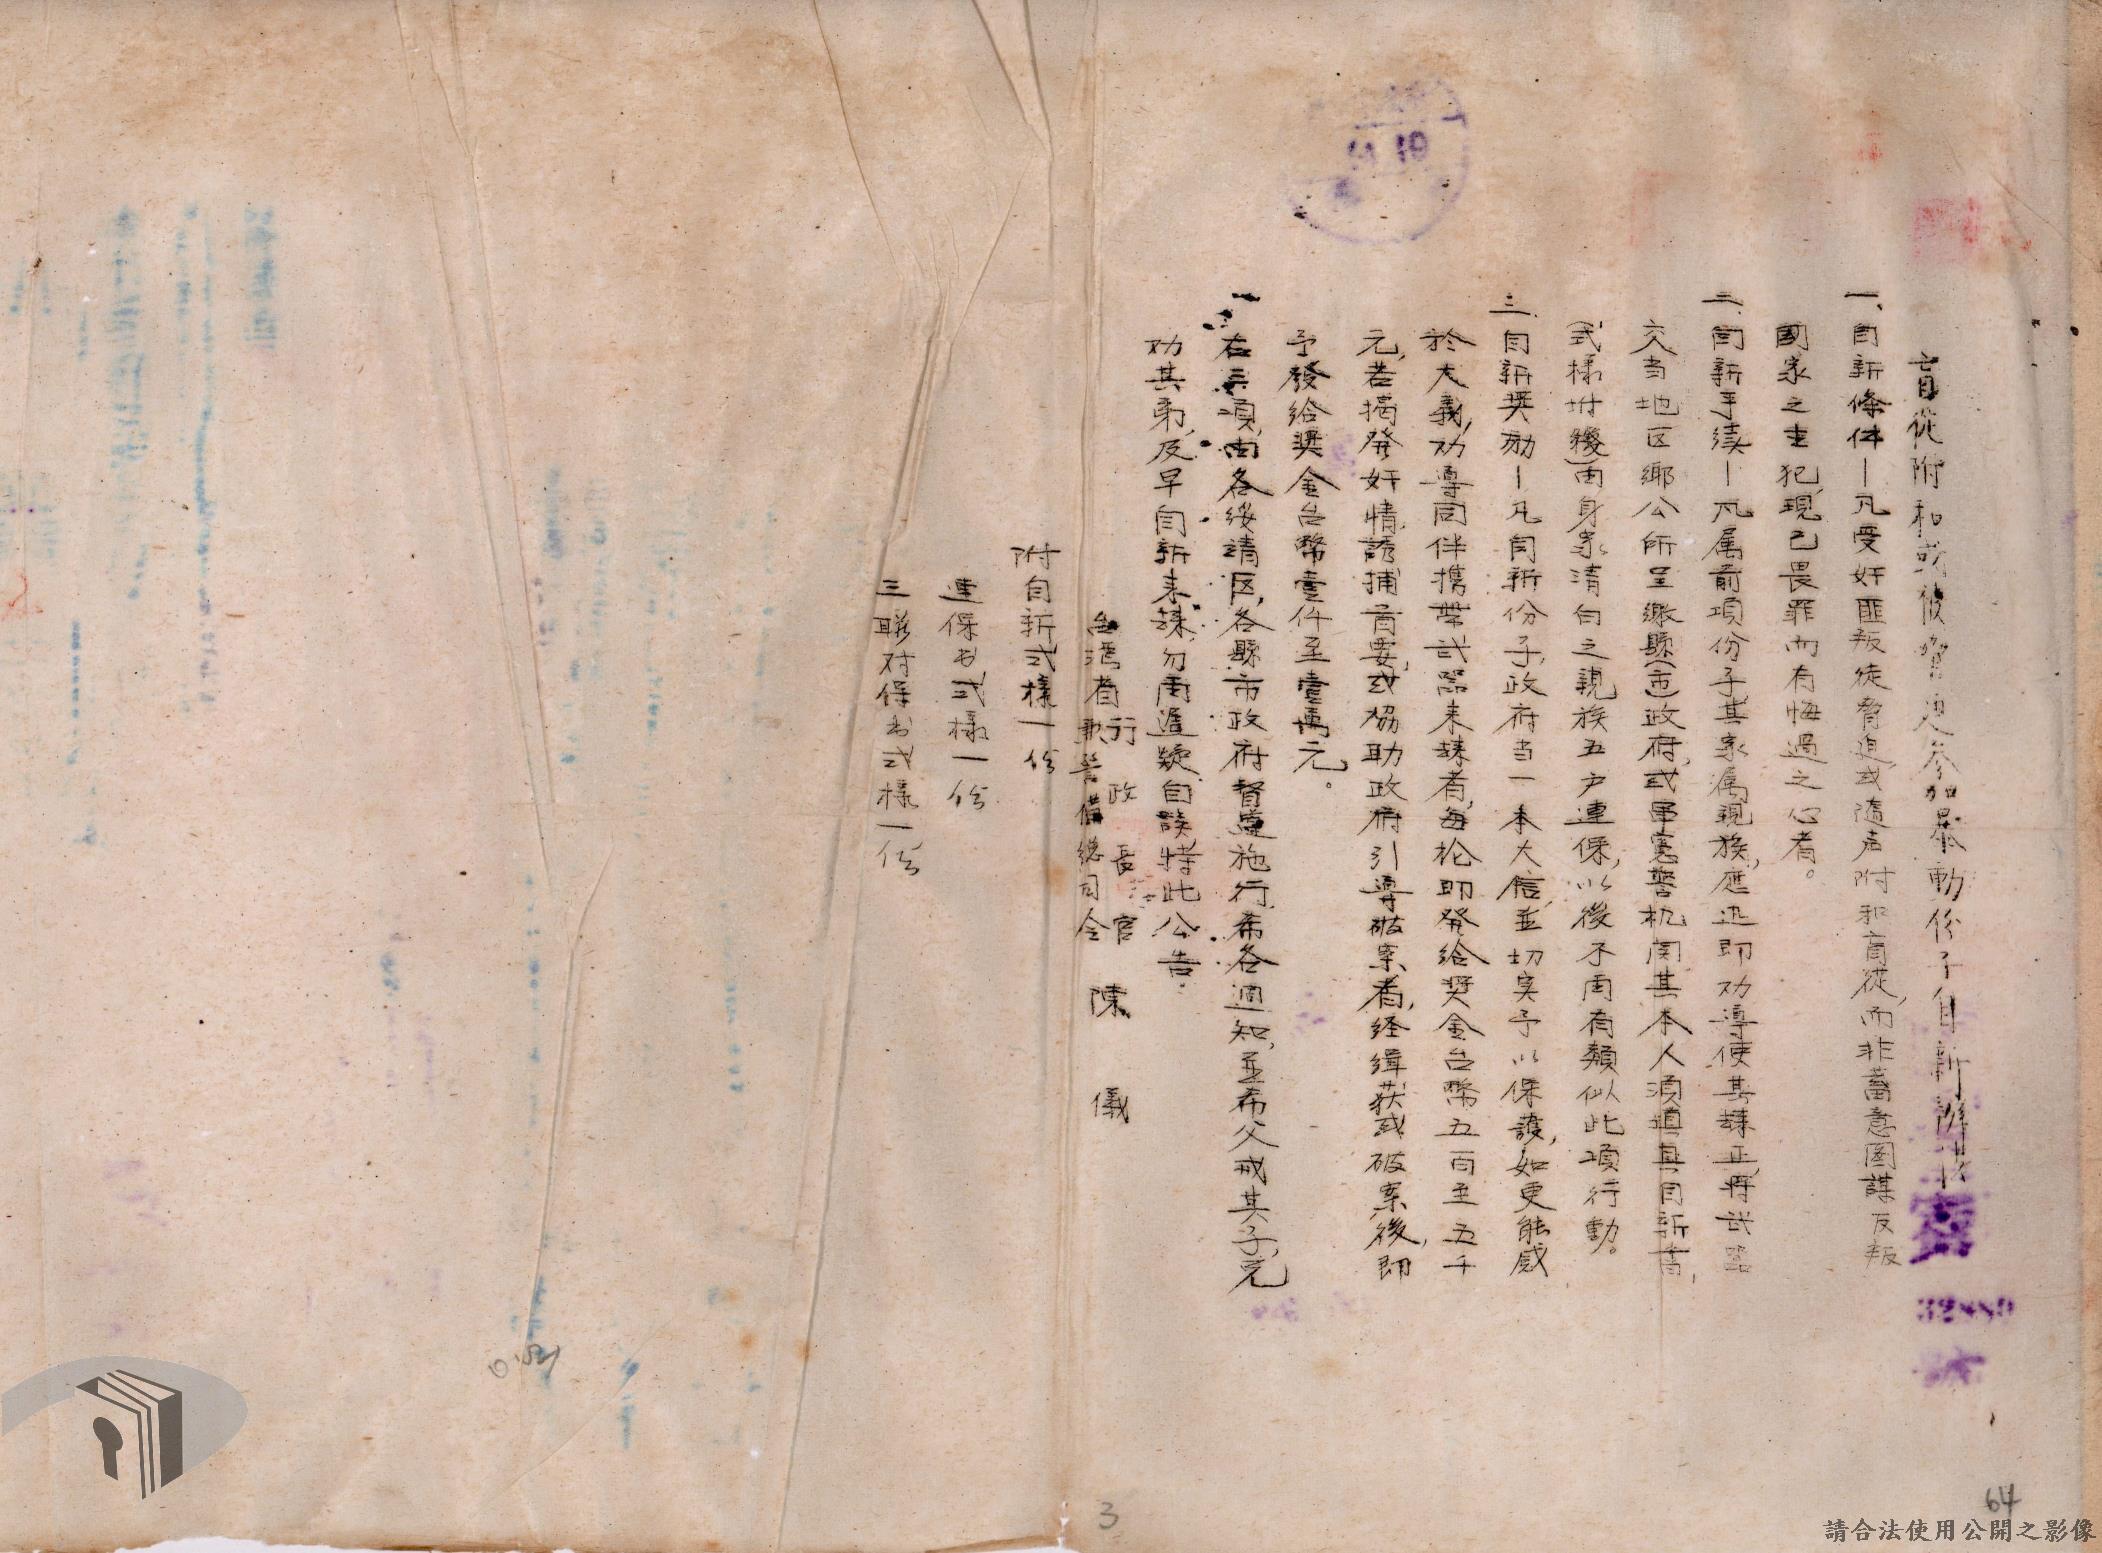 盲從附和或被脅迫參加暴動份子自新辦法
一、自新條件—凡受奸匪叛徒脅迫,或隨声附和盲從,而非蓄意图謀反叛
國家之主犯,現已畏罪而有悔過之心者。
二、自新手续—凡属前項份子,其家属親族,應迅即劝導使其歸正,將武器
交当地区鄉公所呈繳縣(市)政府,或軍憲警机関,其本人須填具自新書,
(式樣坿後)由身家清白之親族五户連保,以後不再有類似此項行動。
三、自新奬励—凡自新份子,政府当一本大信,並切实予以保護,如更能感
於大義,劝導同伴携帶武器来歸者,每枪即発給奬金台幣五百至五千
元,若揭発奸情,誘捕首要,或協助政府引導破案者,経緝获或破案後,即
予發給奬金台幣壹仟至壹萬元。
右三項,由各绥靖区,各縣市政府督導施行,希各週知,並希父戒其子,兄
劝其弟,及早自新来歸,勿再遲疑自誤,特此公告。
台灣省行政長官
兼警備總司令 陳儀
附自新式樣一份
連保书式樣一份
三聯对保书式樣一份
19
32489
3
64
請合法使用公開之影像